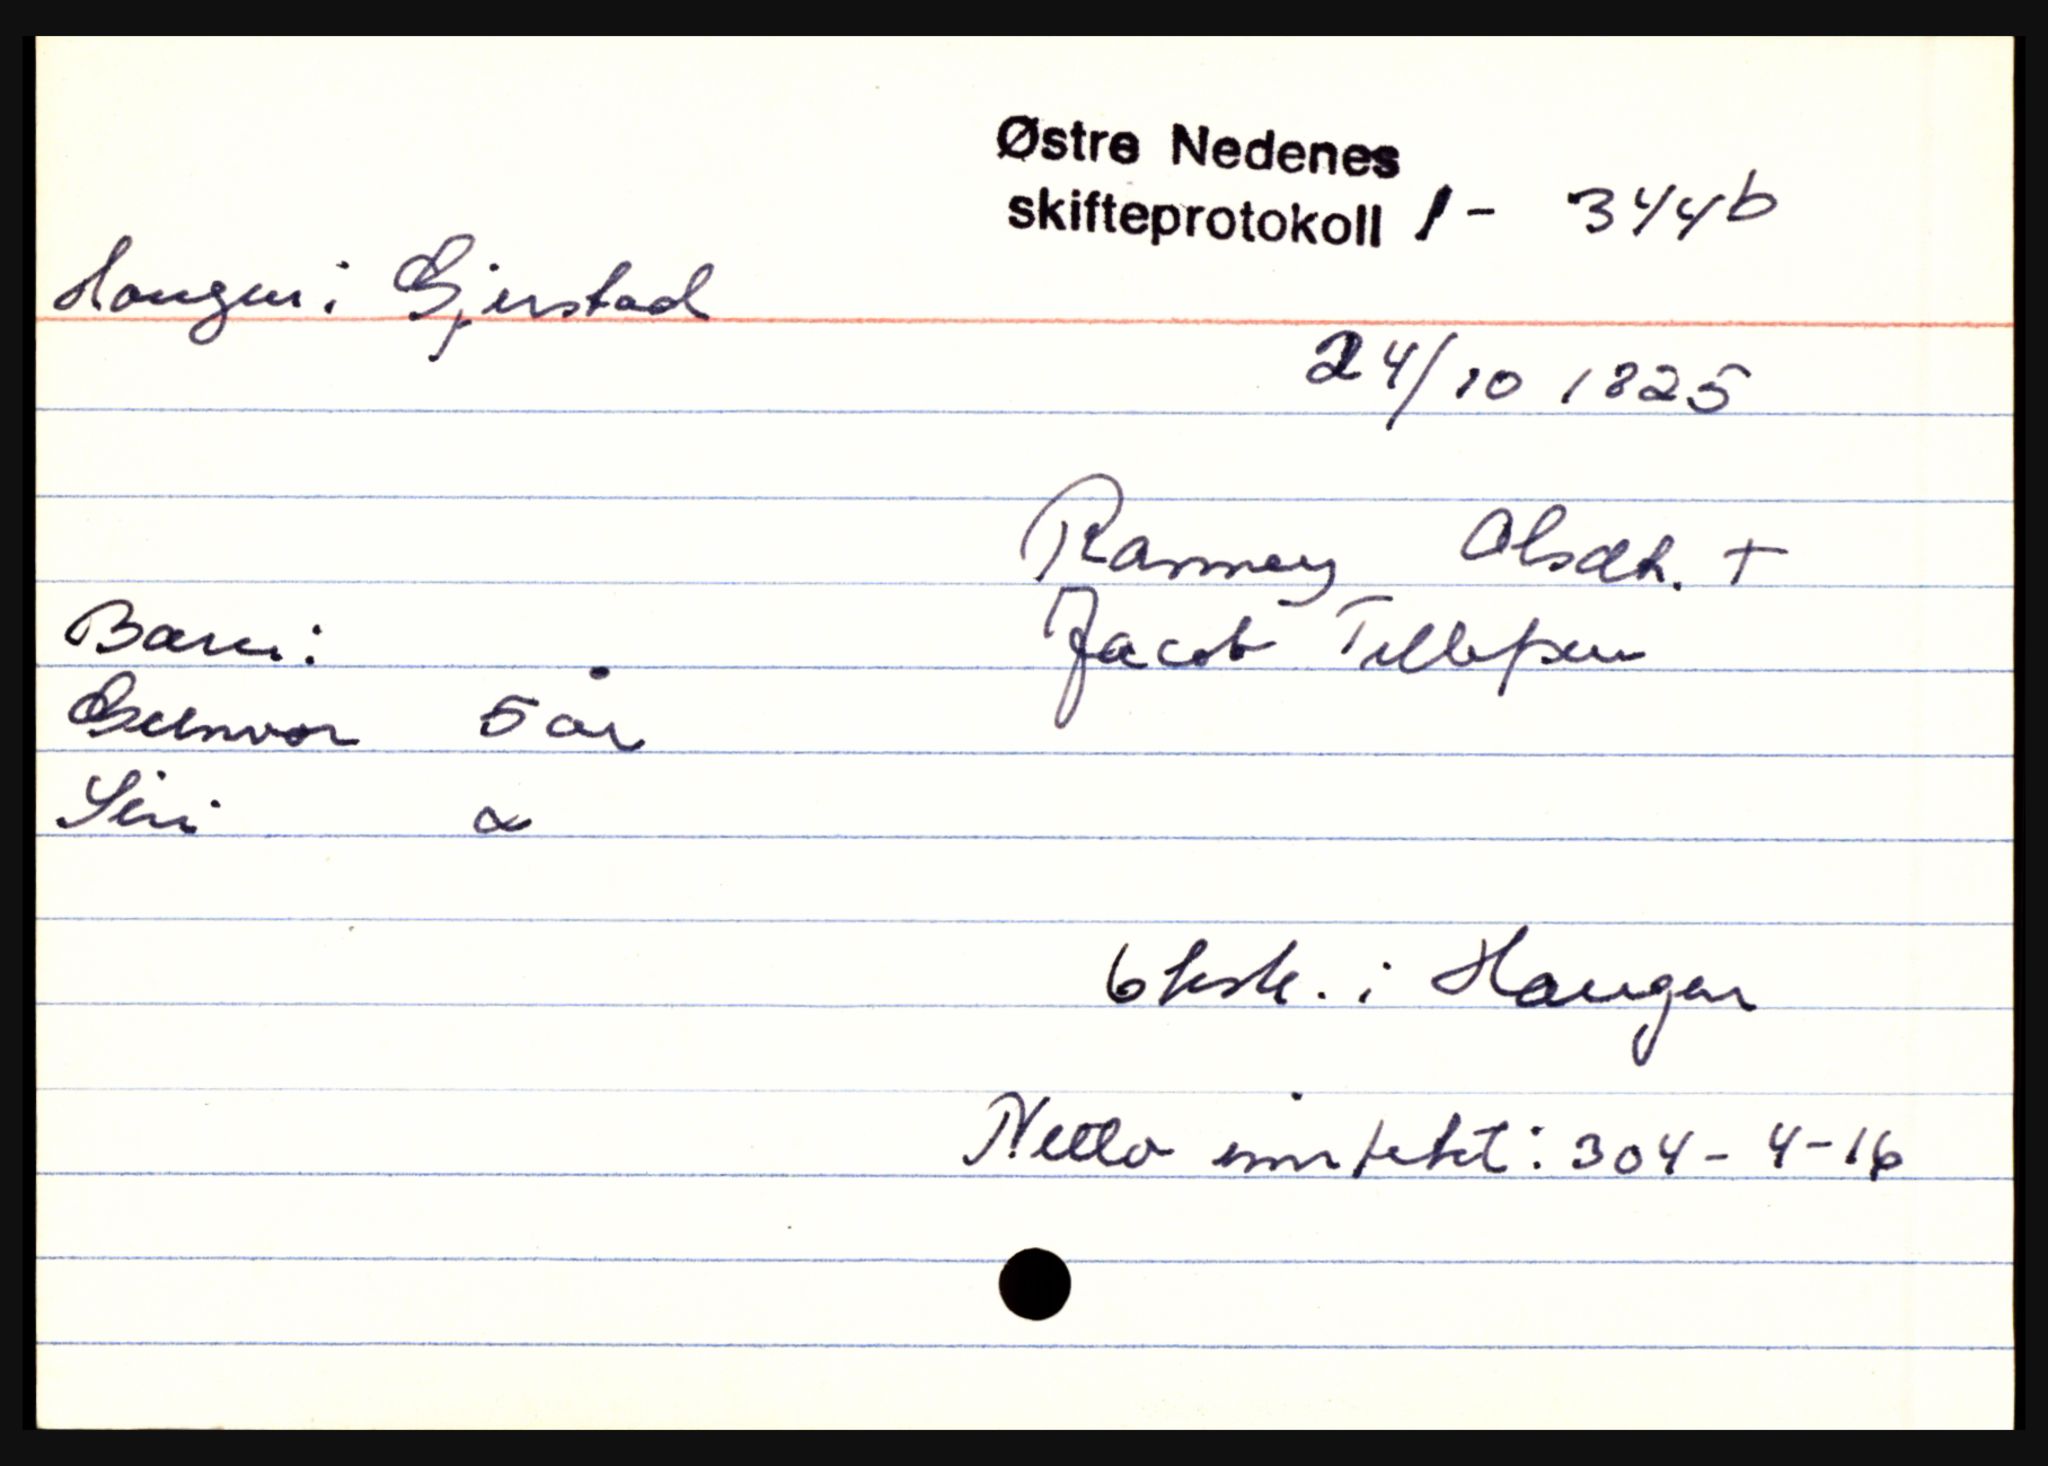 Østre Nedenes
skifteprotokoll 1 - 344b
Haugen i Gjerstad
24/10 1825
Ranney Olsdtr. +
Jacob Tellefsen
Barn:
Gunvor 5 år
Siri 2
i Haugen
Netto inntekt: 304-4-16